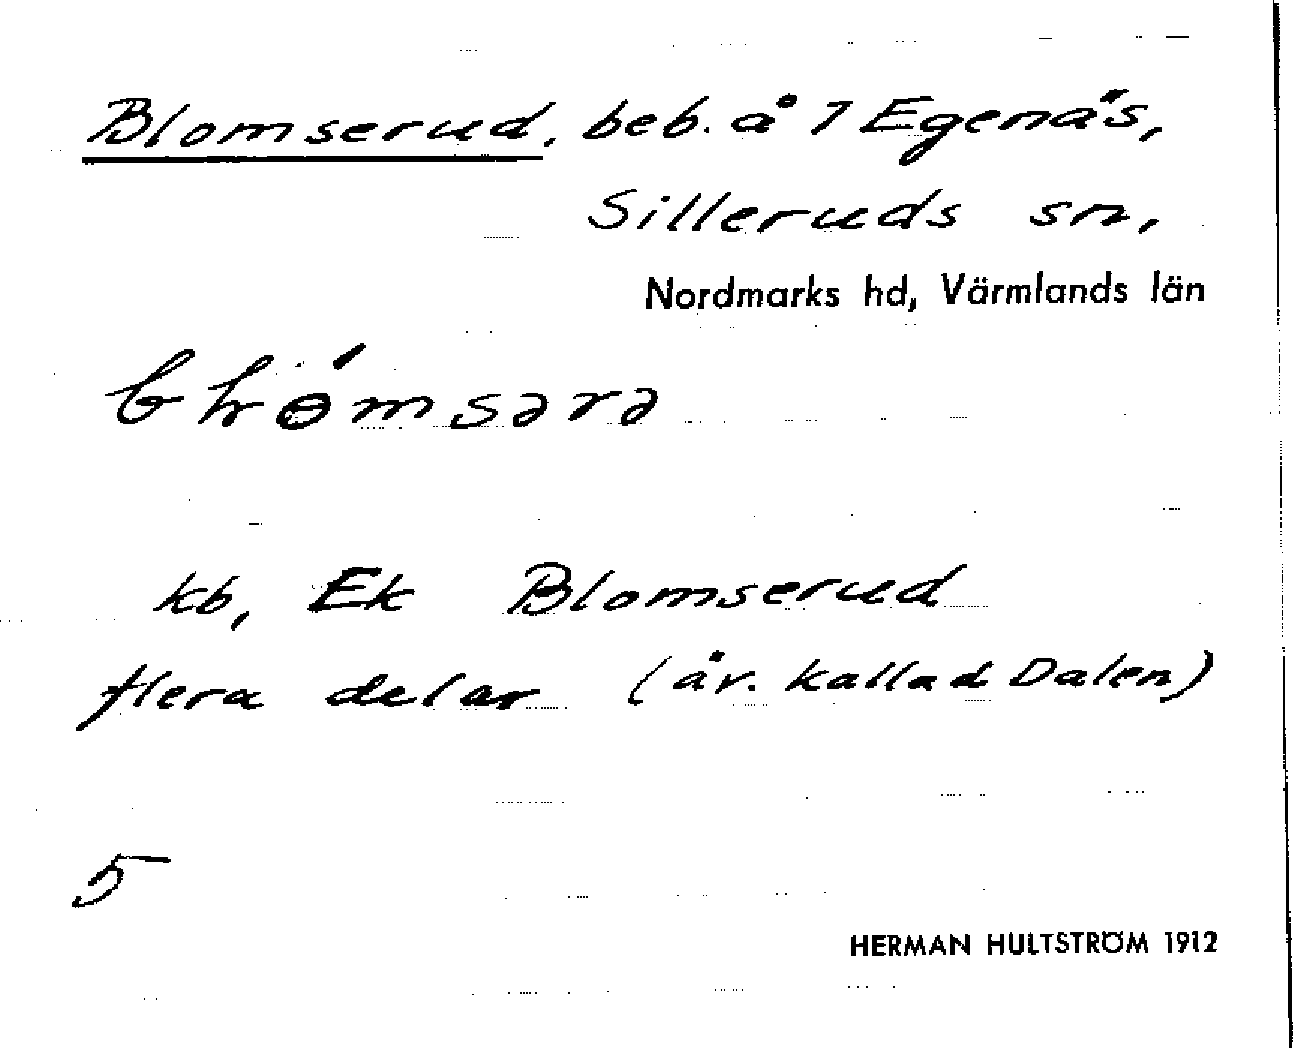 Blomserud, beb. å 1 Egenäs,
Silleruds sn,
Nordmarks hd, Värmlands län
kb, Ek Blomserud
flera delar (äv. kallad Dalen)
5
HERMAN HULTSTRÖM 1912